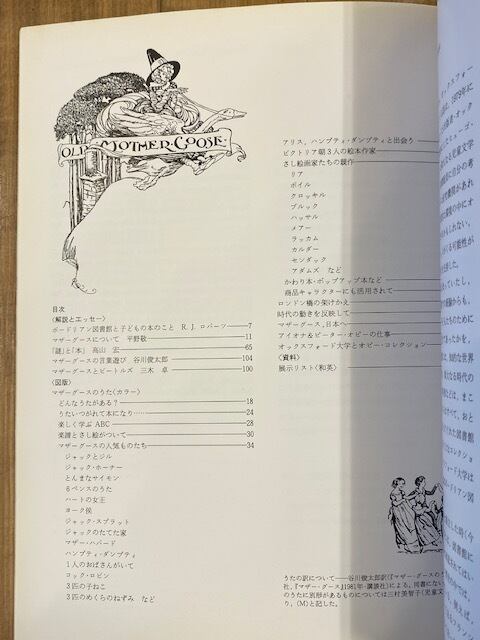 OLD MOTHER GOOSE
目次
〈解説とエッセー〉
ボードリアン図書館と子どもの本のこと R. J. ロバーツ 7
マザーグースについて 平野敬一 11
「謎」と「本」 高山 宏 65
マザーグースの言葉遊び 谷川俊太郎 104
マザーグースとビートルズ 三木 卓 100
〈図版〉
マザーグースのうた(カラー)
どんなうたがある? 18
うたいつがれて本になり…… 24
楽しく学ぶ ABC 28
楽譜とさし絵がついて 30
マザーグースの人気ものたち 34
ジャックとジル
ジャック・ホーナー
とんまなサイモン
6ペンスのうた
ハートの女王
ヨーク侯
ジャック・スプラット
ジャックのたてた家
マザー・ハバード
ハンプティ・ダンプティ
1人のおばさんがいて
コック・ロビン
3匹の子ねこ
3匹のめくらのねずみ など
アリス、ハンプティ・ダンプティと出会う
ビクトリア朝3人の絵本作家
さし絵画家たちの競作
リア
ボイル
クロッキル
ブルック
ハッサル
メアー
ラッカム
カルダー
センダック
アダムズ など
かわり本・ポップアップ本など
商品キャラクターにも活用されて
ロンドン橋の架けかえ
時代の動きを反映して
マザーグース、日本へ
アイオナ&ピーター・オピーの仕事
オックスフォード大学とオピー・コレクション
〈資料〉
展示リスト(和英)
うたの訳について——谷川俊太郎訳(『マザー・グースのう
社、『マザー・グース』1981年・講談社)による。同書にない
のうたに別形があるものについては三村美智子(児童文
り、(M)と記した。